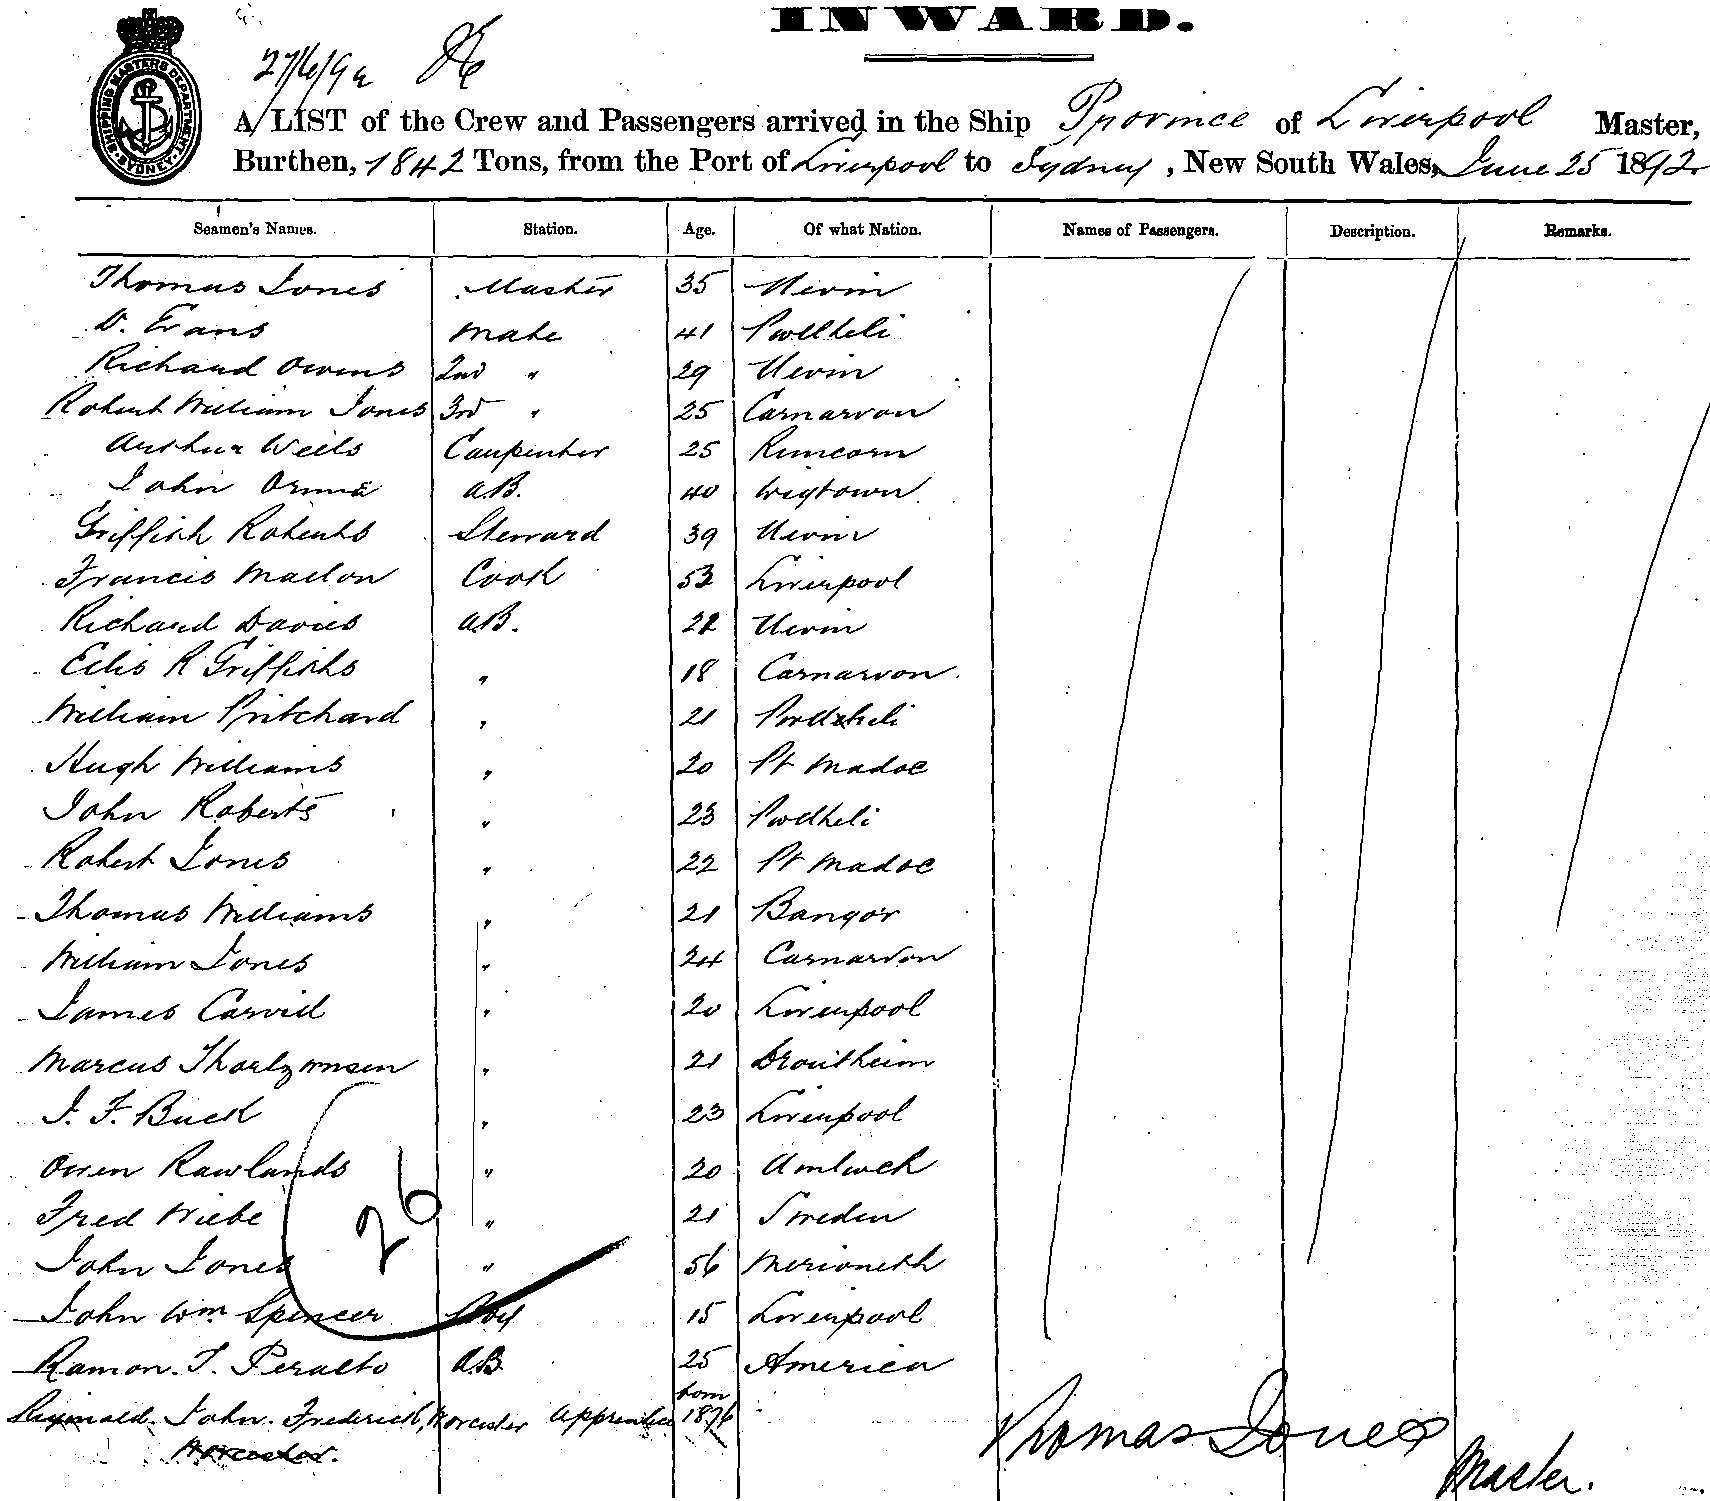 INWARD.
27/6/92
SHIPPING MASTERS DEPARTMENT SYDNEY
A LIST of the Crew and Passengers arrived in the Ship Province of Liverpool Master,
Burthen, 1842 Tons, from the Port of Liverpool to Sydney, New South Wales, June 25 1892
Seamen's Names. Station. Age. Of what Nation. Names of Passengers. Description. Remarks.
Thomas Jones Master 35 Nevin
D. Evans Mate 41 Pwllheli
Richard Owens 2nd " 29 Nevin
Robert William Jones 3rd " 25 Carnarvon
Arthur Wells Carpenter 25 Runcorn
John 40 Wigtown
A.B.
Griffith Roberts Steward 39 Nevin
Francis Cook 53 Liverpool
Richard Davies A.B. Nevin
Ellis R Griffiths " 18 Carnarvon
William Pritchard " 21 Pwllheli
Hugh Williams " 20 Pt Madoc
John Roberts " 23 Pwllheli
Robert Jones " 22 Pt Madoc
Thomas Williams " 21 Bangor
William Jones " 24 Carnarvon
James Carvid " 20 Liverpool
Marcus " 21 Drontheim
J. F. Buck " 23 Liverpool
Owen Rawlands " 20 Amlwch
Fred Wiebe " 21 Sweden
26
John Jones " 56 Merioneth
John Wm Spencer Boy 15 Liverpool
Ramon. T. Peralto A.B. 25 America
Reginald. John. Frederick, Worcester Apprentice born 1876
Worcester.
Thomas Jones
Master.